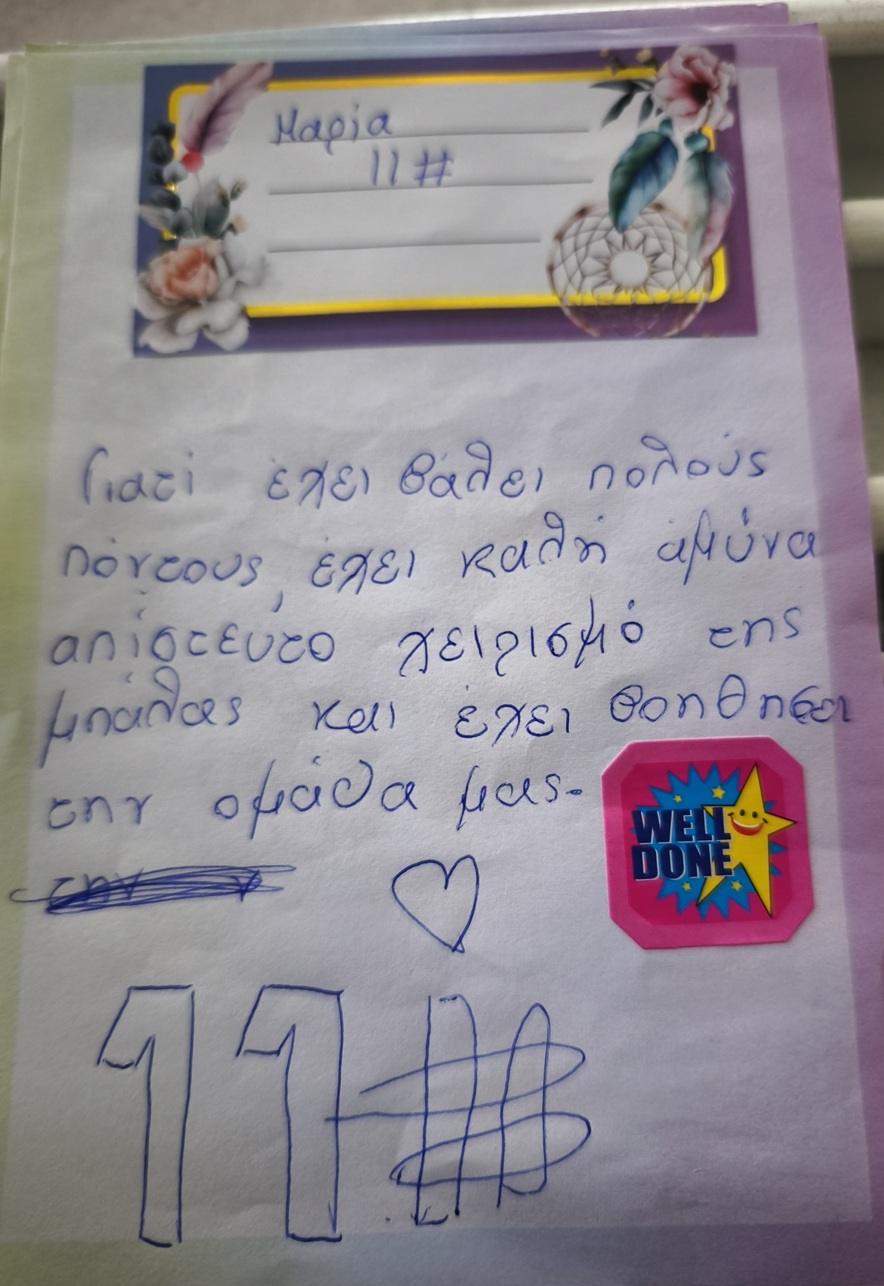 Μαρία
11#
Γιατί έχει βάλει πολούς
πόντους, έχει καλή άμύνα
απίστευτο χειρισμό της
μπάλας και έχει βοηθησει
την ομάδα μας.
WELL
DONE
11#